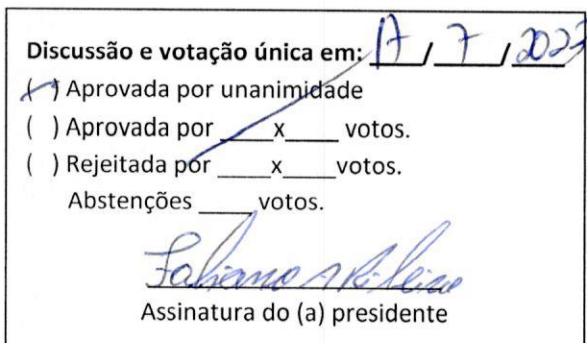 Discussão e votação única em: 17 / 7 / 2023
( ) Aprovada por unanimidade
( ) Aprovada por ____x____ votos.
( ) Rejeitada por ____x____votos.
Abstenções ____ votos.
Fabiano
Assinatura do (a) presidente